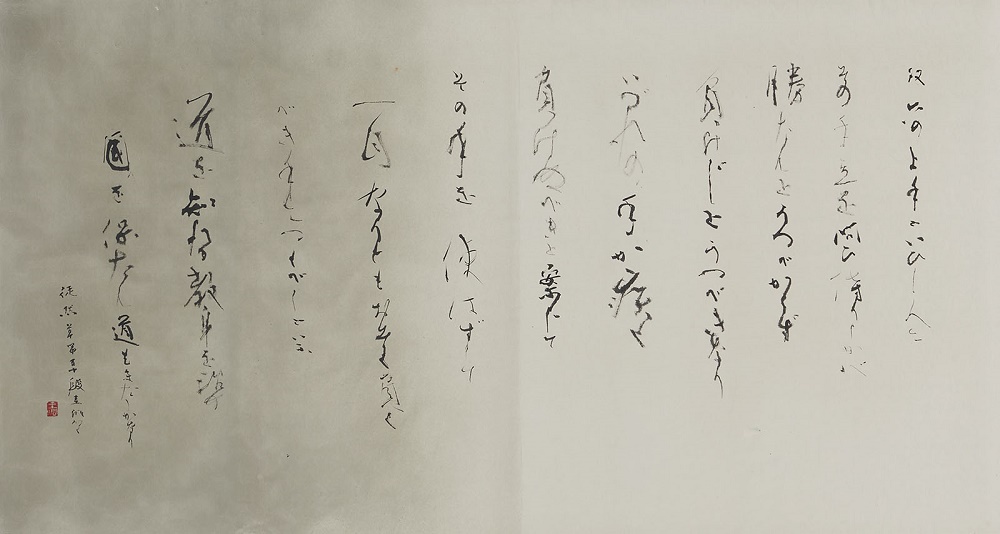 双六の上手といひし人に
その手立を問ひ侍りしかば
勝たんとうつべからず
負けじとうつべきなり
いづれの手か疾く
負けぬべきと案じて
その手を使はずし
一目なりともおそく負く
べき手につくべしといふ
道を知れる教身を治め
国を保たん道もまたしかなり
徒然草第百十段